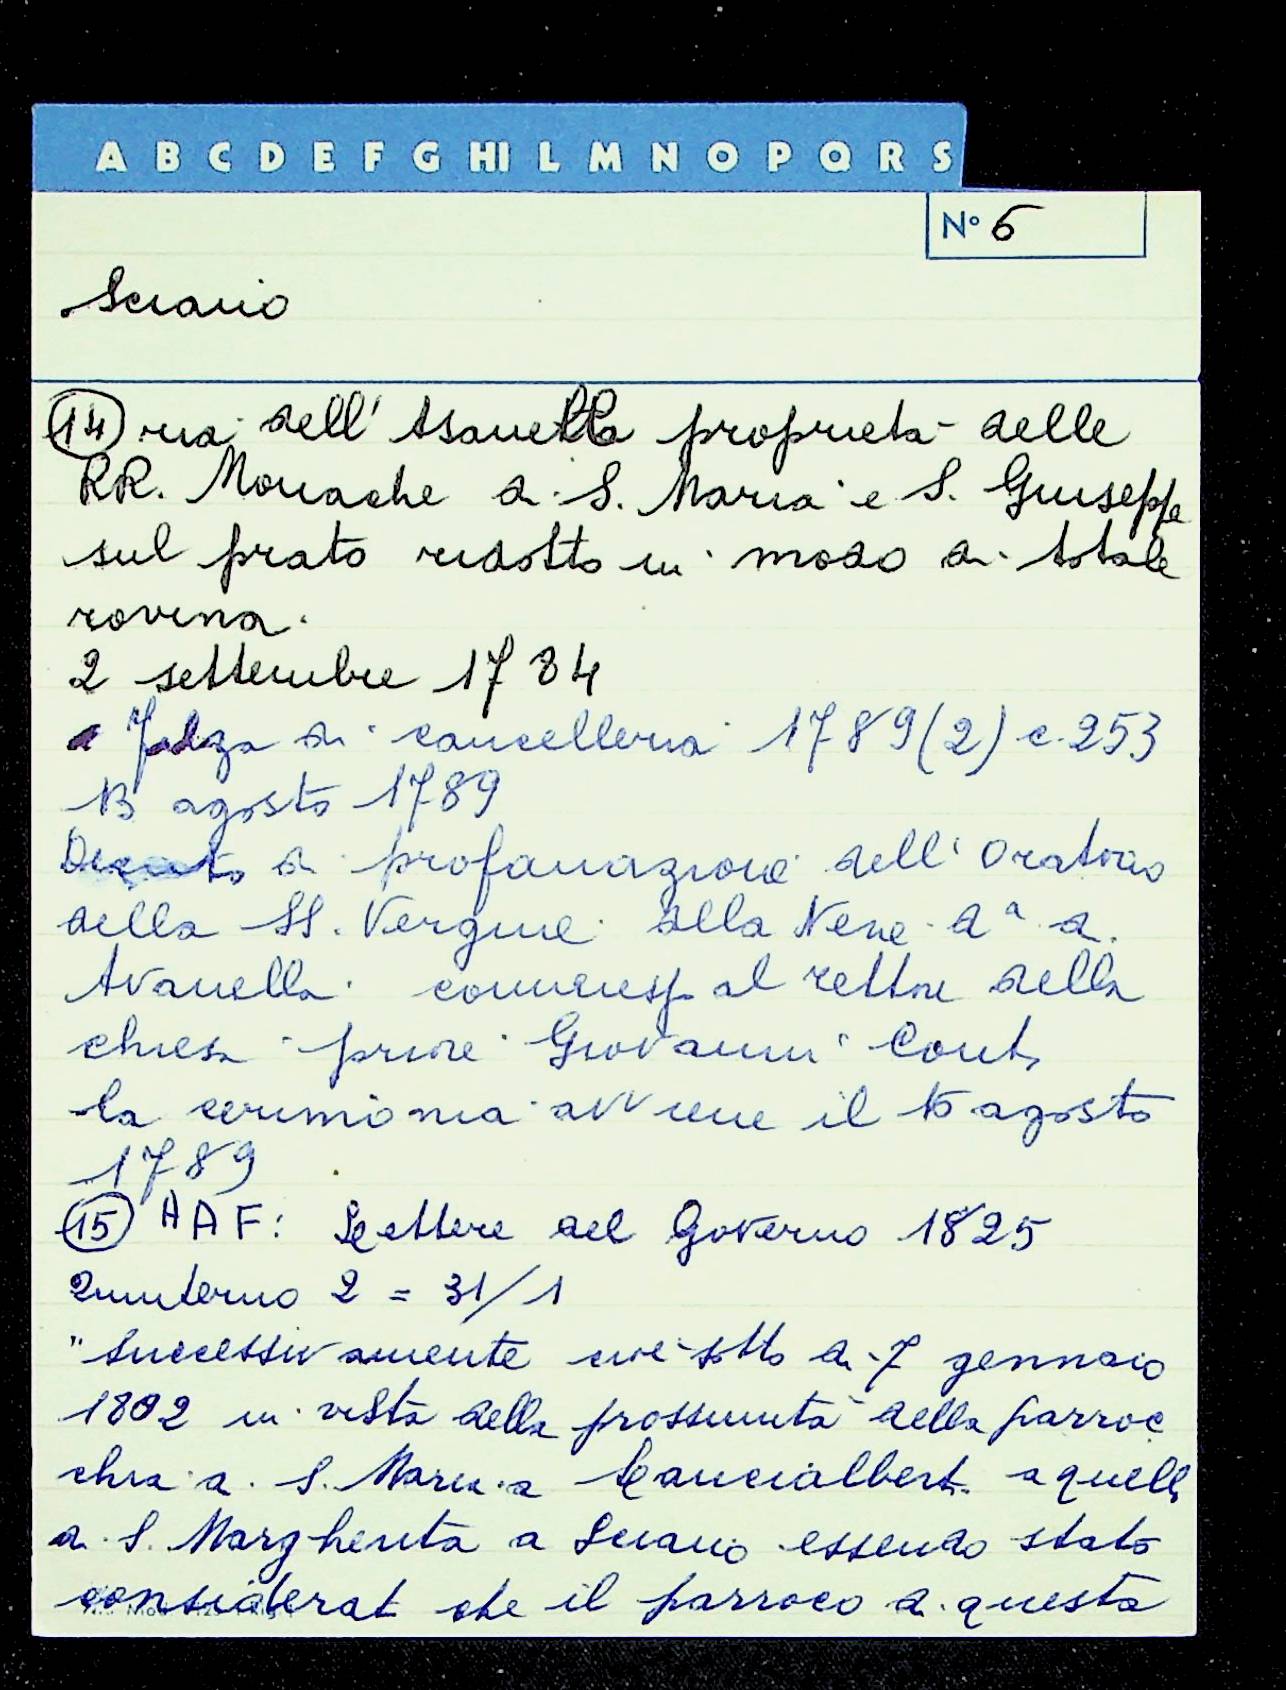 A B C D E F G HI L M N O P Q R S
N° 6
Sciano
14 ria dell'Avanella proprietà delle
RR. Monache di S. Maria e S. Giuseppe
sul prato ridotto in modo di totale
rovina.
2 settembre 1784
Filza di cancelleria 1789 (2) c. 253
13 agosto 1789
Decreto di profanazione dell'Oratorio
della SS. Vergine alla Neve da
Avanella al rettore della
chiesa priore Giovanni Conti
la cerimonia avvene il 15 agosto
1789
15 AAF: Lettere del Governo 1825
Quinterno 2 = 31/1
"Successivamente sotto di 7 gennaio
1802 in vista della prossimità della parroc
chia di S. Maria a Lancialberti a quella
di S. Margherita a Sciano essendo stato
considerat che il parroco di questa